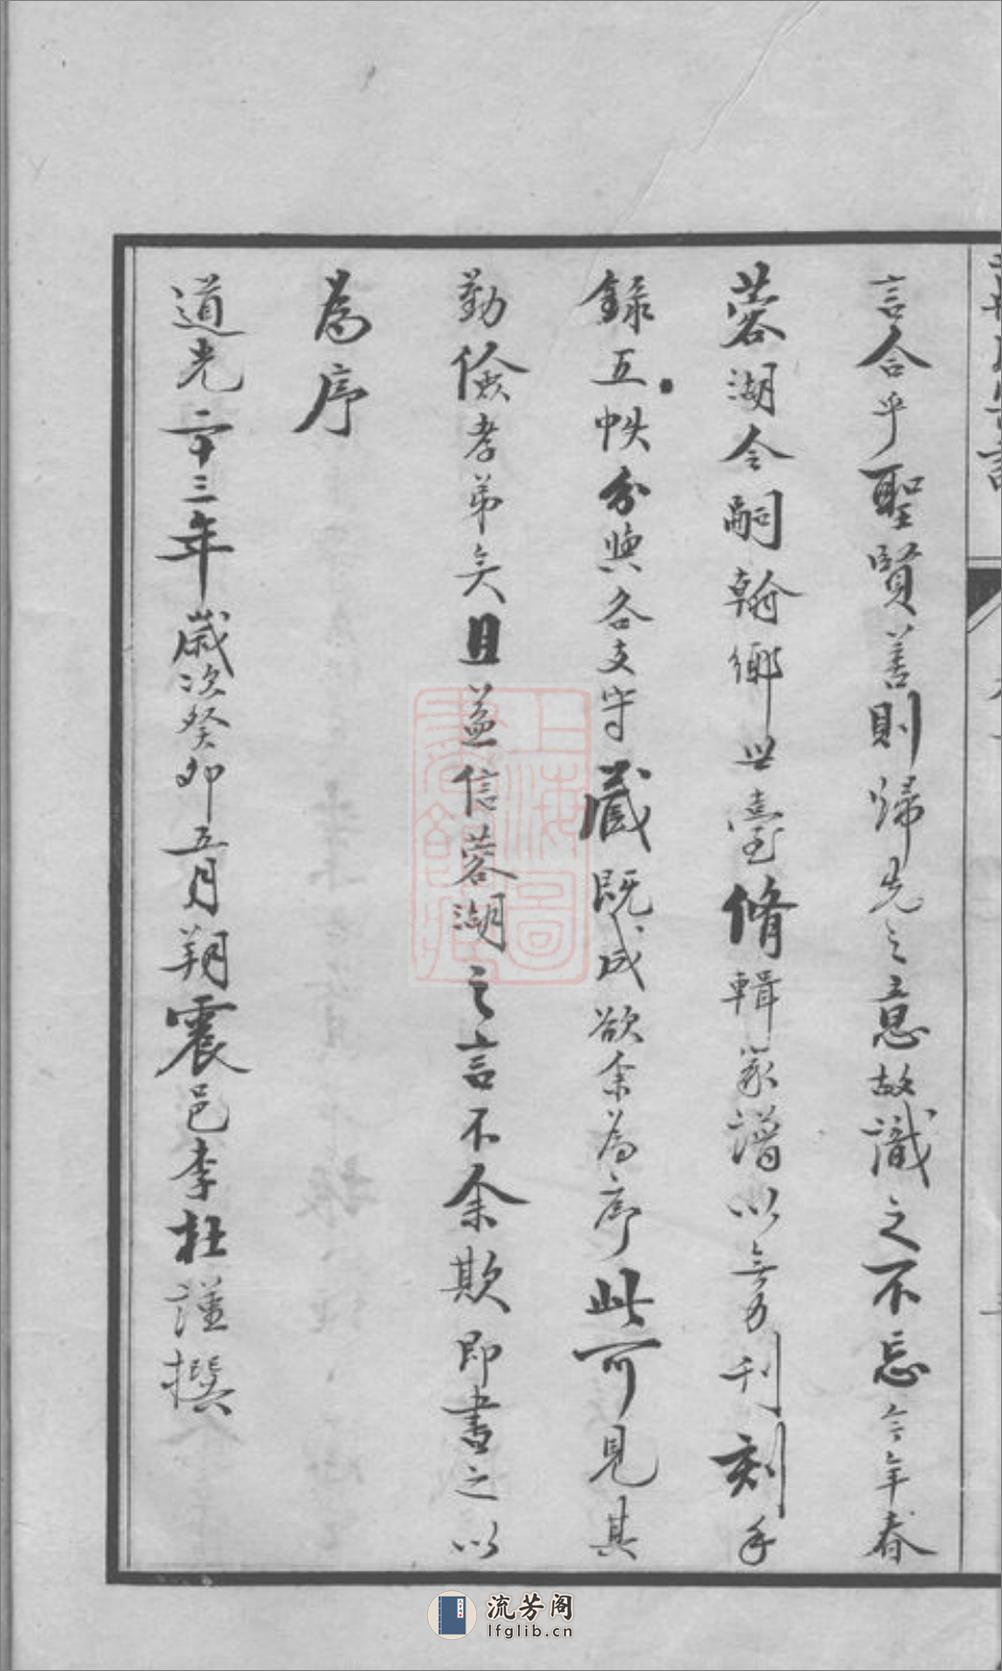 言合乎聖賢善則歸先之意故識之不忘今年春
蓉湖令嗣翰鄉世臺脩輯家譜以無力刊刻手
錄五帙分與各支守藏既成欲余為序此可見其
勤儉孝弟矣且益信蓉湖之言不余欺即書之以
為序
道光二十三年歲次癸卯五月朔震邑李杜謹撰
上海圖書館藏
流芳阁
lfglib.cn